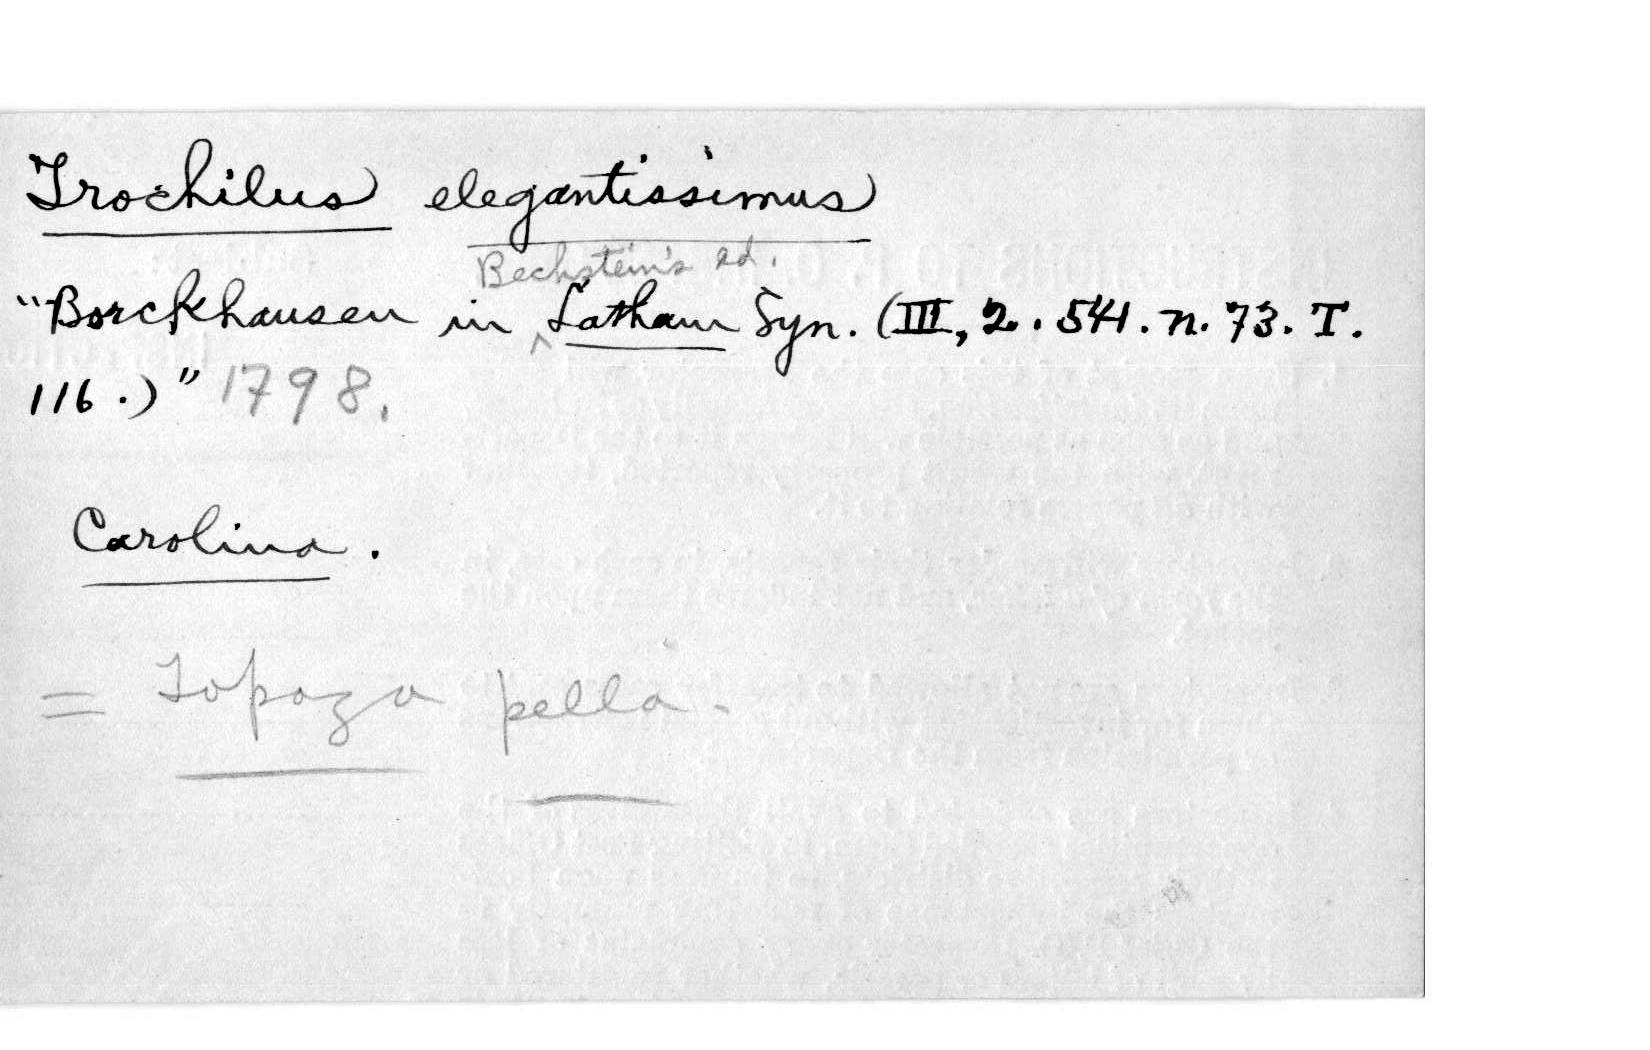 Trochilus elegantissimus
Bechstein's ed.
"Borckhausen in ^ Latham Syn. (III, 2. 541. n. 73. T.
116.)" 1798.
Carolina.
= Topaza pella.